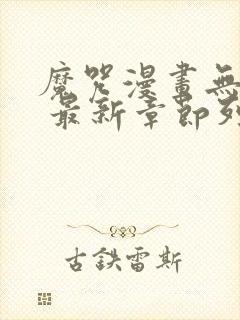 魔咒漫畫無
最新章節列
古鉄雷斯